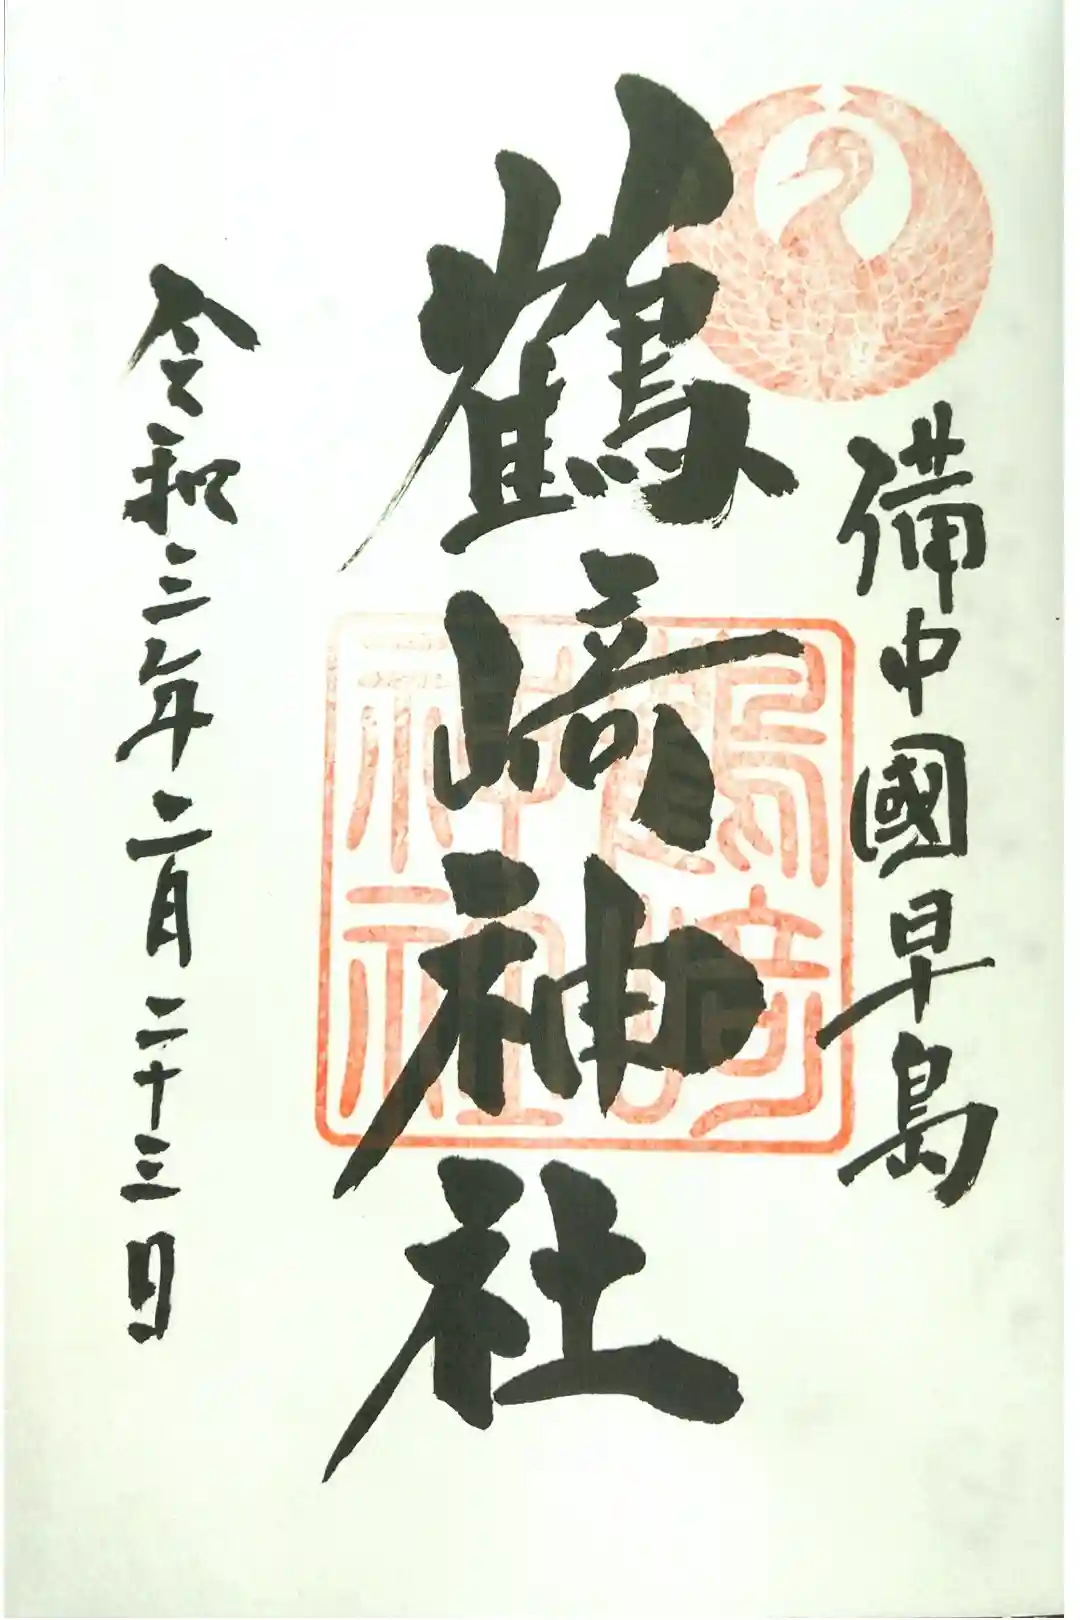 備中國早島
鶴﨑神社
鶴崎神社
令和三年二月二十三日